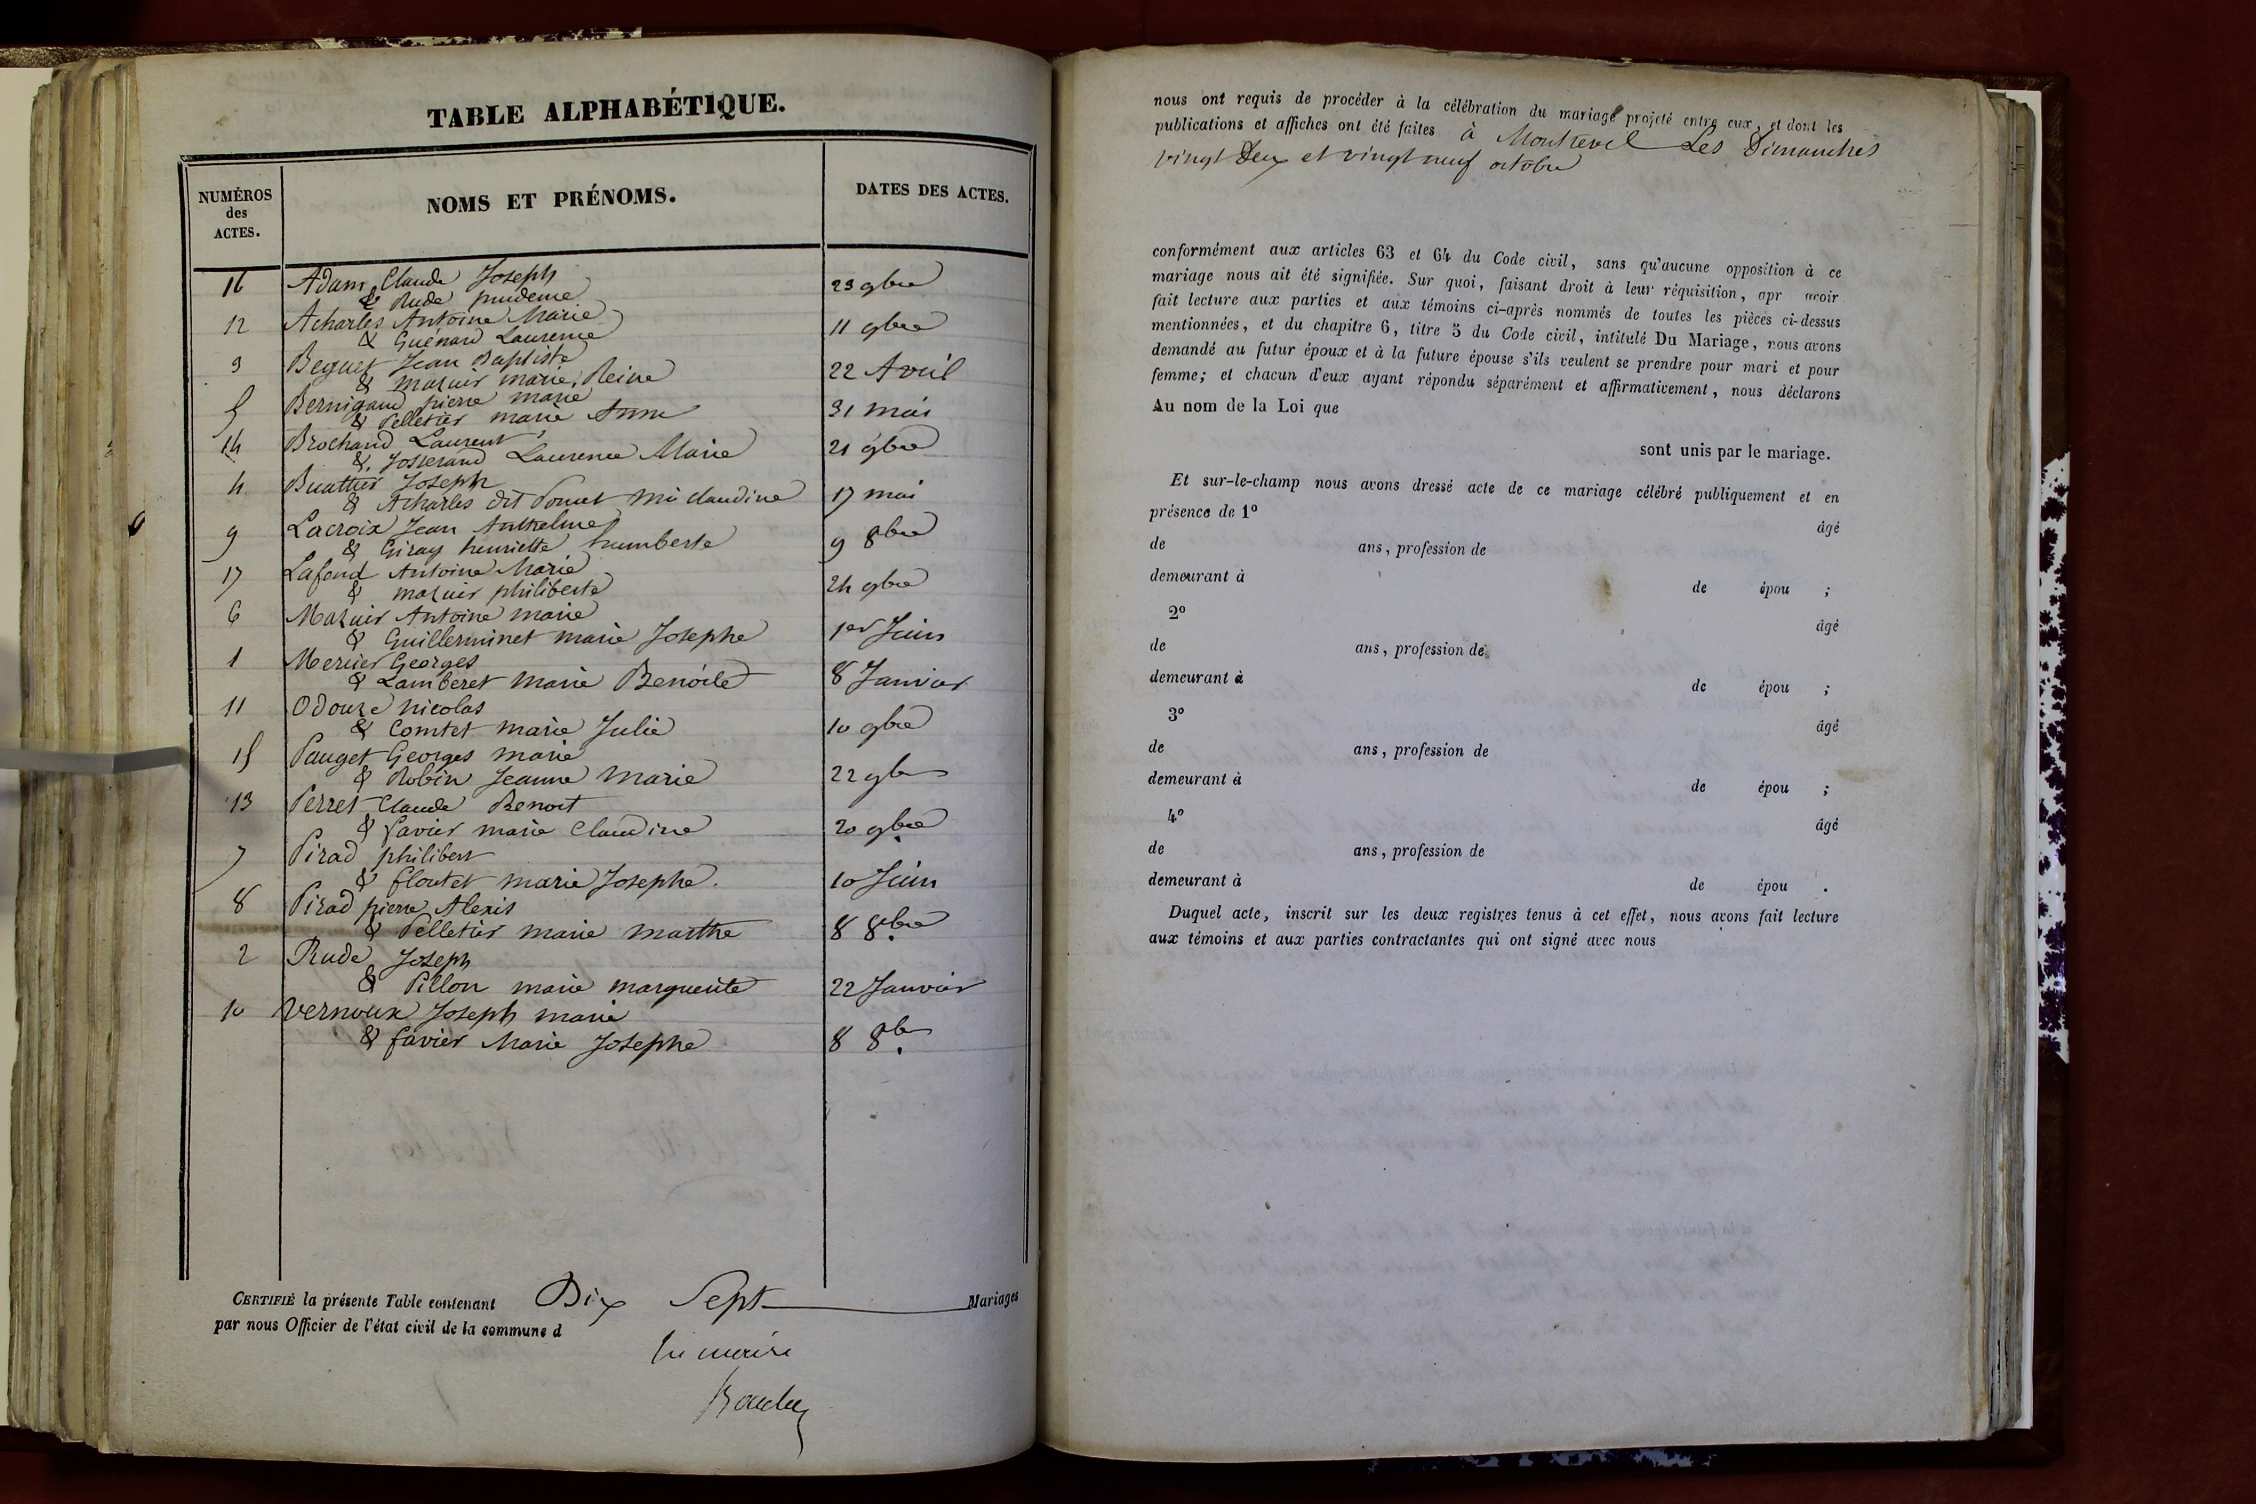 TABLE ALPHABÉTIQUE.
NUMÉROS
des
ACTES.
NOMS ET PRÉNOMS.
DATES DES ACTES.
16 Adam Claude Joseph
& Rude prudence 23 9bre
12 Acharles Antoine Marie
& Guénard Laurence 11 9bre
3 Beguet Jean Baptiste
& mazuir marie Reine 22 Avril
5 Bernigaud pierre marie
& Pelletier marie Anne 31 mai
14 Brochand Laurent
& Josserand Laurence Marie 21 9bre
4 Buattier Joseph
& Acharles dit Pomet mie claudine 17 mai
9 Lacroix Jean Anthelme
& Giray henriette humberte 9 8bre
17 Lafond Antoine Marie
& mazuir philiberte 24 9bre
6 Mazuir Antoine marie
& Guilleminet marie Josephe 1er Juin
1 Mercier Georges
& Lamberet marie Benoite 8 Janvier
11 Odouze nicolas
& Comtet marie Julie 10 9bre
15 Pauget Georges marie
& Robin Jeanne Marie 22 9bre
13 Perret Claude Benoit
& favier marie claudine 20 9bre
7 Pirad philibert
& floutet marie Josephe. 10 Juin
8 Pirad pierre Alexis
& Pelletier marie marthe 8 8bre
2 Rude Joseph
& Pillon marie marguerite 22 Janvier
10 Vernoux Joseph marie
& favier Marie Josephe 8 8bre
CERTIFIÉ la présente Table contenant Dix Sept Mariages
par nous Officier de l'état civil de la commune d
Le maire
nous ont requis de procéder à la célébration du mariage projeté entre eux, et dont les
publications et affiches ont été faites à Montrevel Les Dimanches
vingt deux et vingt neuf octobre
conformément aux articles 63 et 64 du Code civil, sans qu'aucune opposition à ce
mariage nous ait été signifiée. Sur quoi, faisant droit à leur réquisition, apr avoir
fait lecture aux parties et aux témoins ci-après nommés de toutes les pièces ci-dessus
mentionnées, et du chapitre 6, titre 5 du Code civil, intitulé Du Mariage, nous avons
demandé au futur époux et à la future épouse s'ils veulent se prendre pour mari et pour
femme; et chacun d'eux ayant répondu séparément et affirmativement, nous déclarons
Au nom de la Loi que
sont unis par le mariage.
Et sur-le-champ nous avons dressé acte de ce mariage célébré publiquement et en
présence de 1° âgé
de ans, profession de
demeurant à de épou ;
2° âgé
de ans, profession de
demeurant à de épou ;
3° âgé
de ans, profession de
demeurant à de épou ;
4° âgé
de ans, profession de
demeurant à de épou .
Duquel acte, inscrit sur les deux registres tenus à cet effet, nous avons fait lecture
aux témoins et aux parties contractantes qui ont signé avec nous